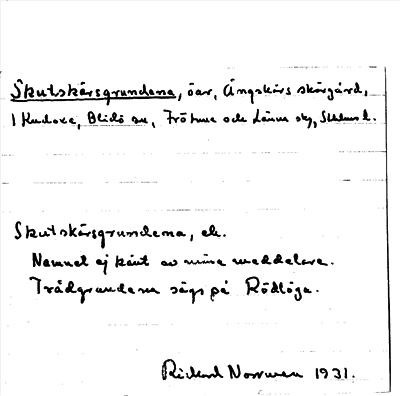 Skutskärsgrundena, öar, Ängskärs skärgård,
i Kudoxa, Blidö sn, Frötuna och Länna skg, Sthlms l.
Skutskärsgrundena, ek.
Namnet ej känt av mina meddelare.
Trädgrundena sägs på Rödlöga.
Rickard Norrman 1931.